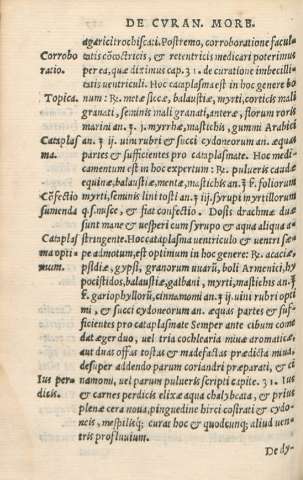 DE CVRAN. MORB.
agarici trochiscati. Postremo, corroboratione facul-
Corrobo ratio.
tatis cõcoctricis, & retentricis medicari poterimus
per ea, quæ diximus cap. 31. de curatione imbecilli-
tatis ventriculi. Hoc cataplasma est in hoc genere bo
Topica.
num: ℞. metæ siccæ, balaustiæ, myrti, corticis mali
granati, seminis mali granati, anteræ, florum roris
marini an. ʒ j. myrrhæ, mastichis, gummi Arabici
Cataplasma.
an. ʒ ij. uini rubri & succi cydoneorum an. æquas
partes & sufficientes pro cataplasmate. Hoc medi-
camentum est in hoc expertum: ℞. pulueris caudæ
equinæ, balaustiæ, mentæ, mastichis an. ʒ ß. foliorum
Cõfectio sumenda
myrti, seminis linī tosti an ʒ iij. syrupi myrtillorum
q.s. misce, & fiat confectio. Dosis drachmæ duæ
sunt mane & uesperi cum syrupo & aqua aliqua a-
Cataplasma optimum.
stringente. Hoc cataplasma uentriculo & uentri sæ-
pe admotum, est optimum in hoc genere: ℞. acaciæ,
psidiæ, gypsi, granorum uuarũ, boli Armenici, hy
pocistidos, balaustiæ, galbani, myrti, mastichis an. ʒ
ß. gariophyllorũ, cinnamomi an. ʒ ij. uini rubri opti
mi, & succi cydoneorum an. æquas partes & suf-
ficientes pro cataplasmate Semper ante cibum come
dat æger duo, uel tria cochlearia miuæ aromaticæ,
aut duas offas tostas & madefactas prædicta miua,
desuper addendo parum coriandri præparati, & ci
Ius perdicis.
namomi, uel parum pulueris scripti capite. 31. Ius
& carnes perdicis elixæ aqua chalybeata, & prius
plenæ cera noua, pinguedine hirci costrati & cydo-
neis, mespilisq́; curat hoc & quodcunq; aliud ven-
tris profluuium.
De dy-